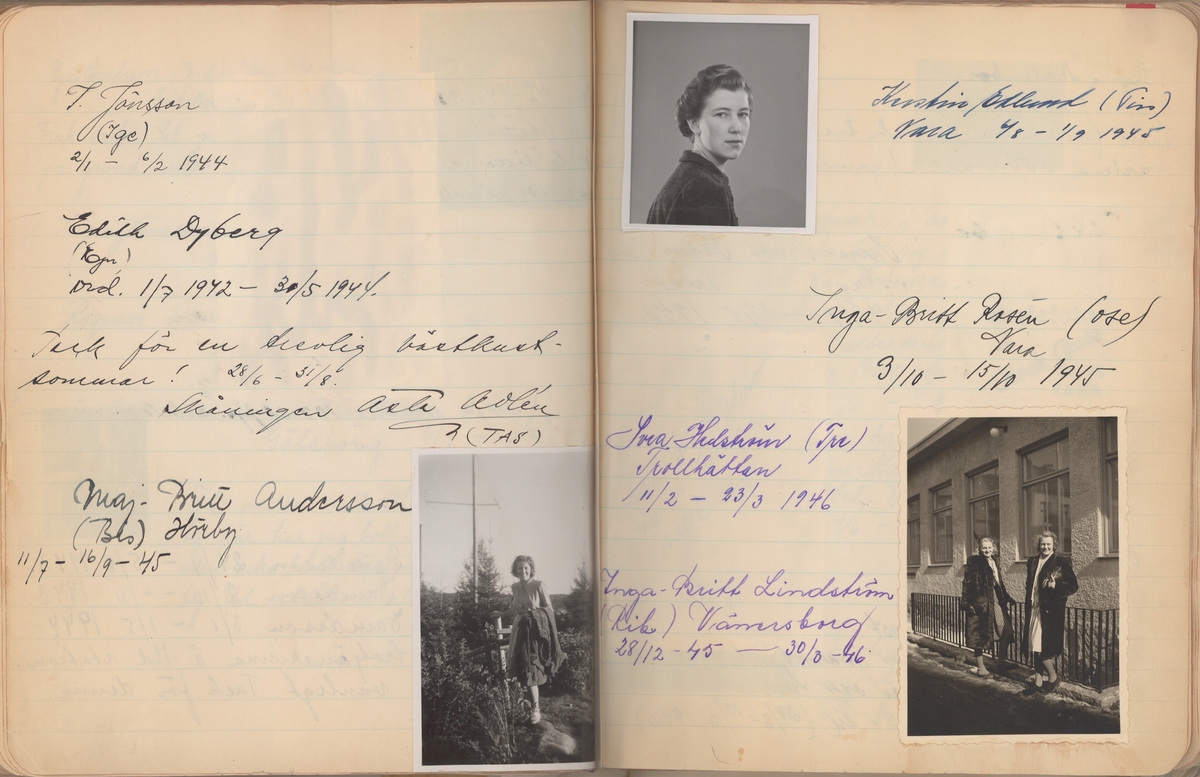 T. Jönsson
(Ige)
2/1 – 6/2 1944
Edith Dyberg
ord. 1/7 1942 – 30/5 1944.
Tack för en trevlig västkust-
sommar! 28/6 – 31/8.
Skåningen Asta Adlén
(TAS)
Maj-Britt Andersson
(Bes) Hörby
11/7 – 16/9 – 45
Kerstin Edlund (Tin)
Vara 4/8 – 1/9 1945
Inga-Britt Rosén (ose)
Vara
3/10 – 15/10 1945
Svea Hulström (Tre)
Trollhättan
11/2 – 23/3 1946
Inga-Britt Lindström
(Rib) Vänersborg
28/12 - 45 — 30/3 - 46